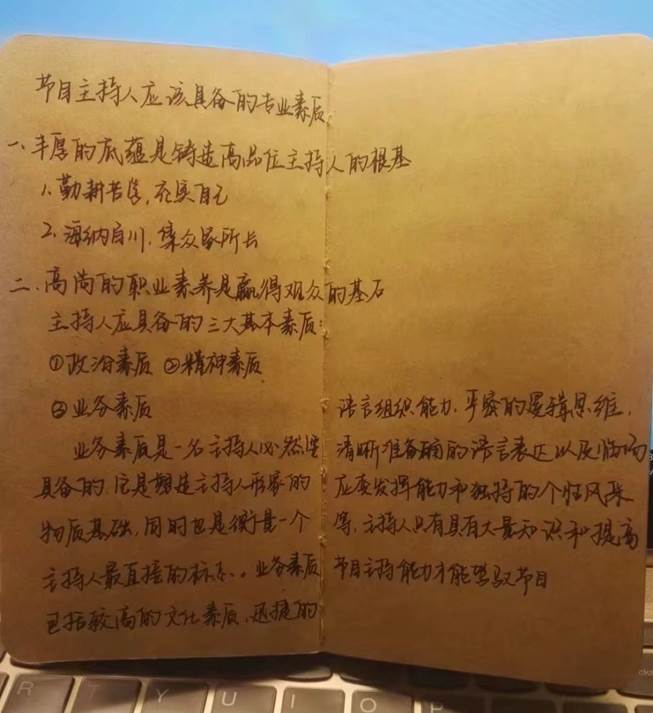 节目主持人应该具备的专业素质
一、丰厚的底蕴是铸造高品位主持人的根基
1、勤耕苦学，充实自己
2、海纳百川，集众家所长
二、高尚的职业素养是赢得观众的基石
主持人应具备的三大基本素质：
①政治素质 ②精神素质
③业务素质
业务素质是一名主持人必然要
具备的，它是塑造主持人形象的
物质基础，同时也是衡量一个
主持人最直接的标志。业务素质
包括较高的文化素质、迅捷的
语言组织能力、严密的逻辑思维、
清晰准备确的语言表达以及临场
应变发挥能力和独特的个性风采
等，主持人只有具有大量知识和提高
节目主持能力才能驾驭节目
R T Y U I O P